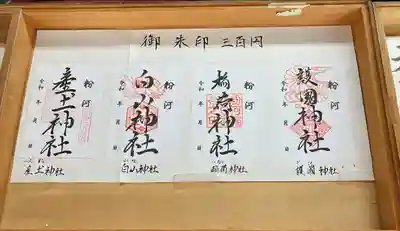 御朱印 三百円
粉河
産土神社
令和 年 月 日
産土神社
粉河
白山神社
令和 年 月 日
白山神社
粉河
稲荷神社
令和 年 月 日
稲荷神社
粉河
護國神社
令和 年 月 日
護國神社